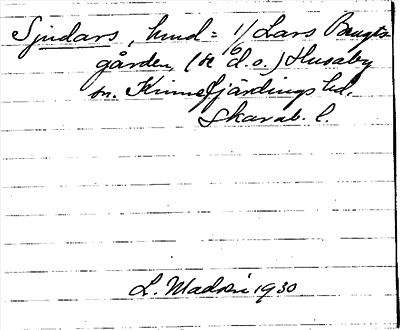 Sjudars, hmd = 1/6 Lars Bengts
gården, (se d.o.) Husaby
sn. Kinnefjärdings hd.
Skarab. l.
L. Modéer 1930